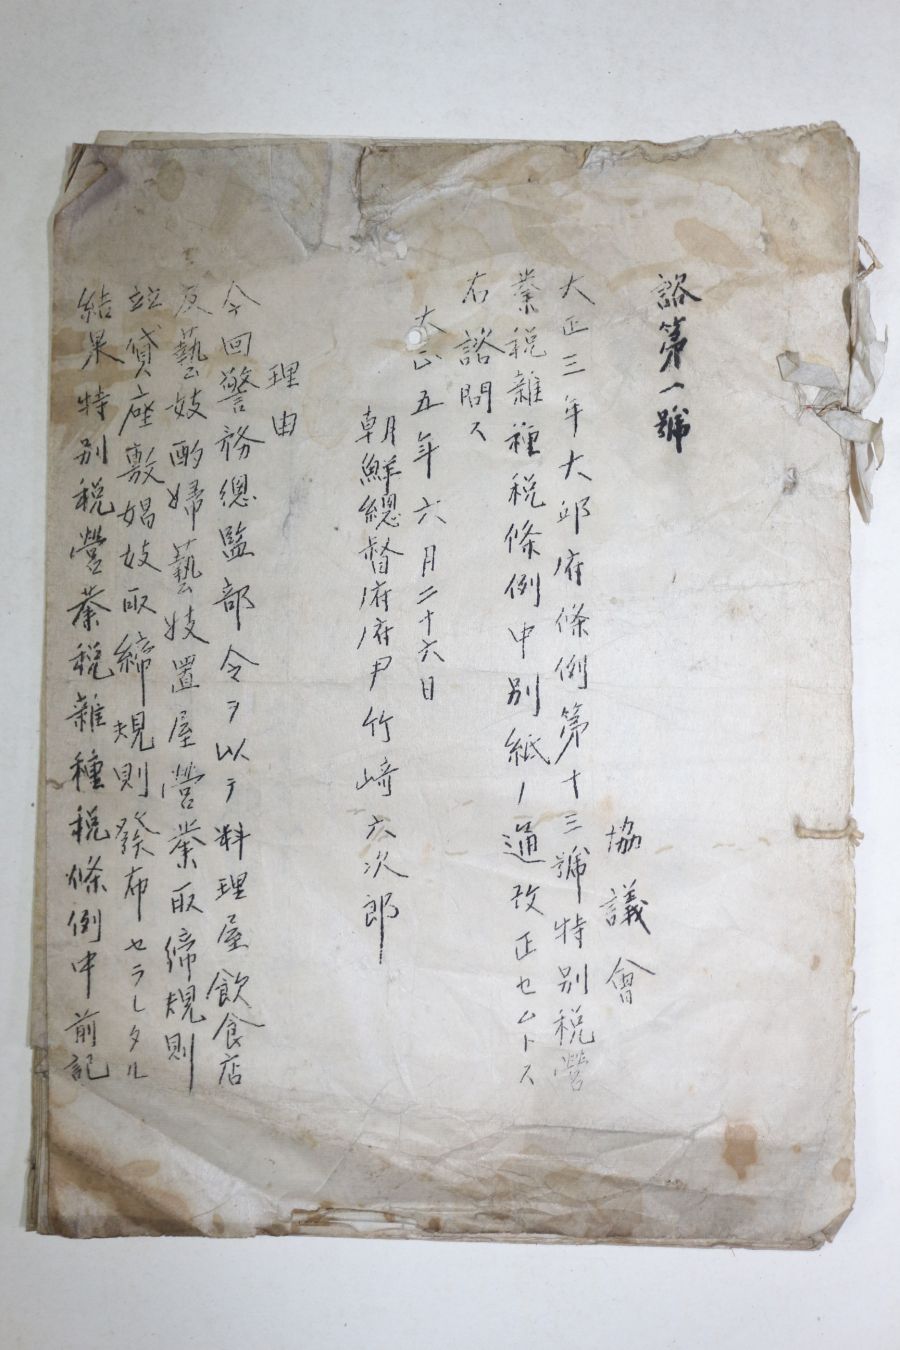 諮第一號
協議會
大正三年大邱府條例第十三號特別税營
業税雜種税條例中別紙ノ通改正セムトス
右諮問ス
大正五年六月二十六日
朝鮮總督府府尹竹﨑六次郎
理由
今回警務總監部令ヲ以テ料理屋飲食店
及藝妓酌婦藝妓置屋營業取締規則
並貸座敷娼妓取締規則發布セラレタル
結果特別税營業税雜種税條例中前記